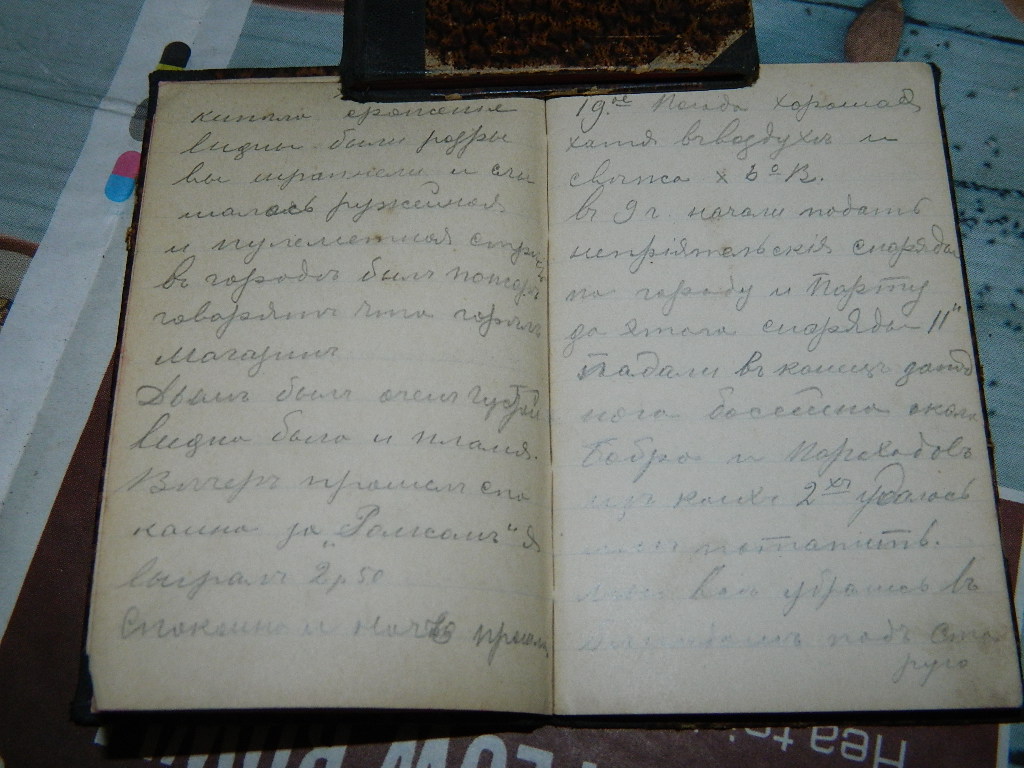 кипело сраженье
видны были разры
вы шрапнели и слы
шалась ружейная
и пулеметная стрѣль
въ городѣ былъ пожаръ
говорятъ что горѣлъ
магазинъ
Дымъ былъ очень густой
видно было и пламя.
Вечеръ прошелъ спо
койно за „Рамсомъ“ я
выгралъ 2р50
Спокойно и ночь прошла
19ое Погода хорошая
хотя въ воздухѣ и
свѣжо х 3о В.
въ 9 г. начали подать
непріятельскія снаряды
по городу и Порту
до этого снаряды 11"
Падали въ конецъ запад
ного бассейна около
Бобра и Пароходовъ
изъ коихъ 2хъ удалось
потопить.
весь убрались въ
подъ Ста
рую
Hea
LOW